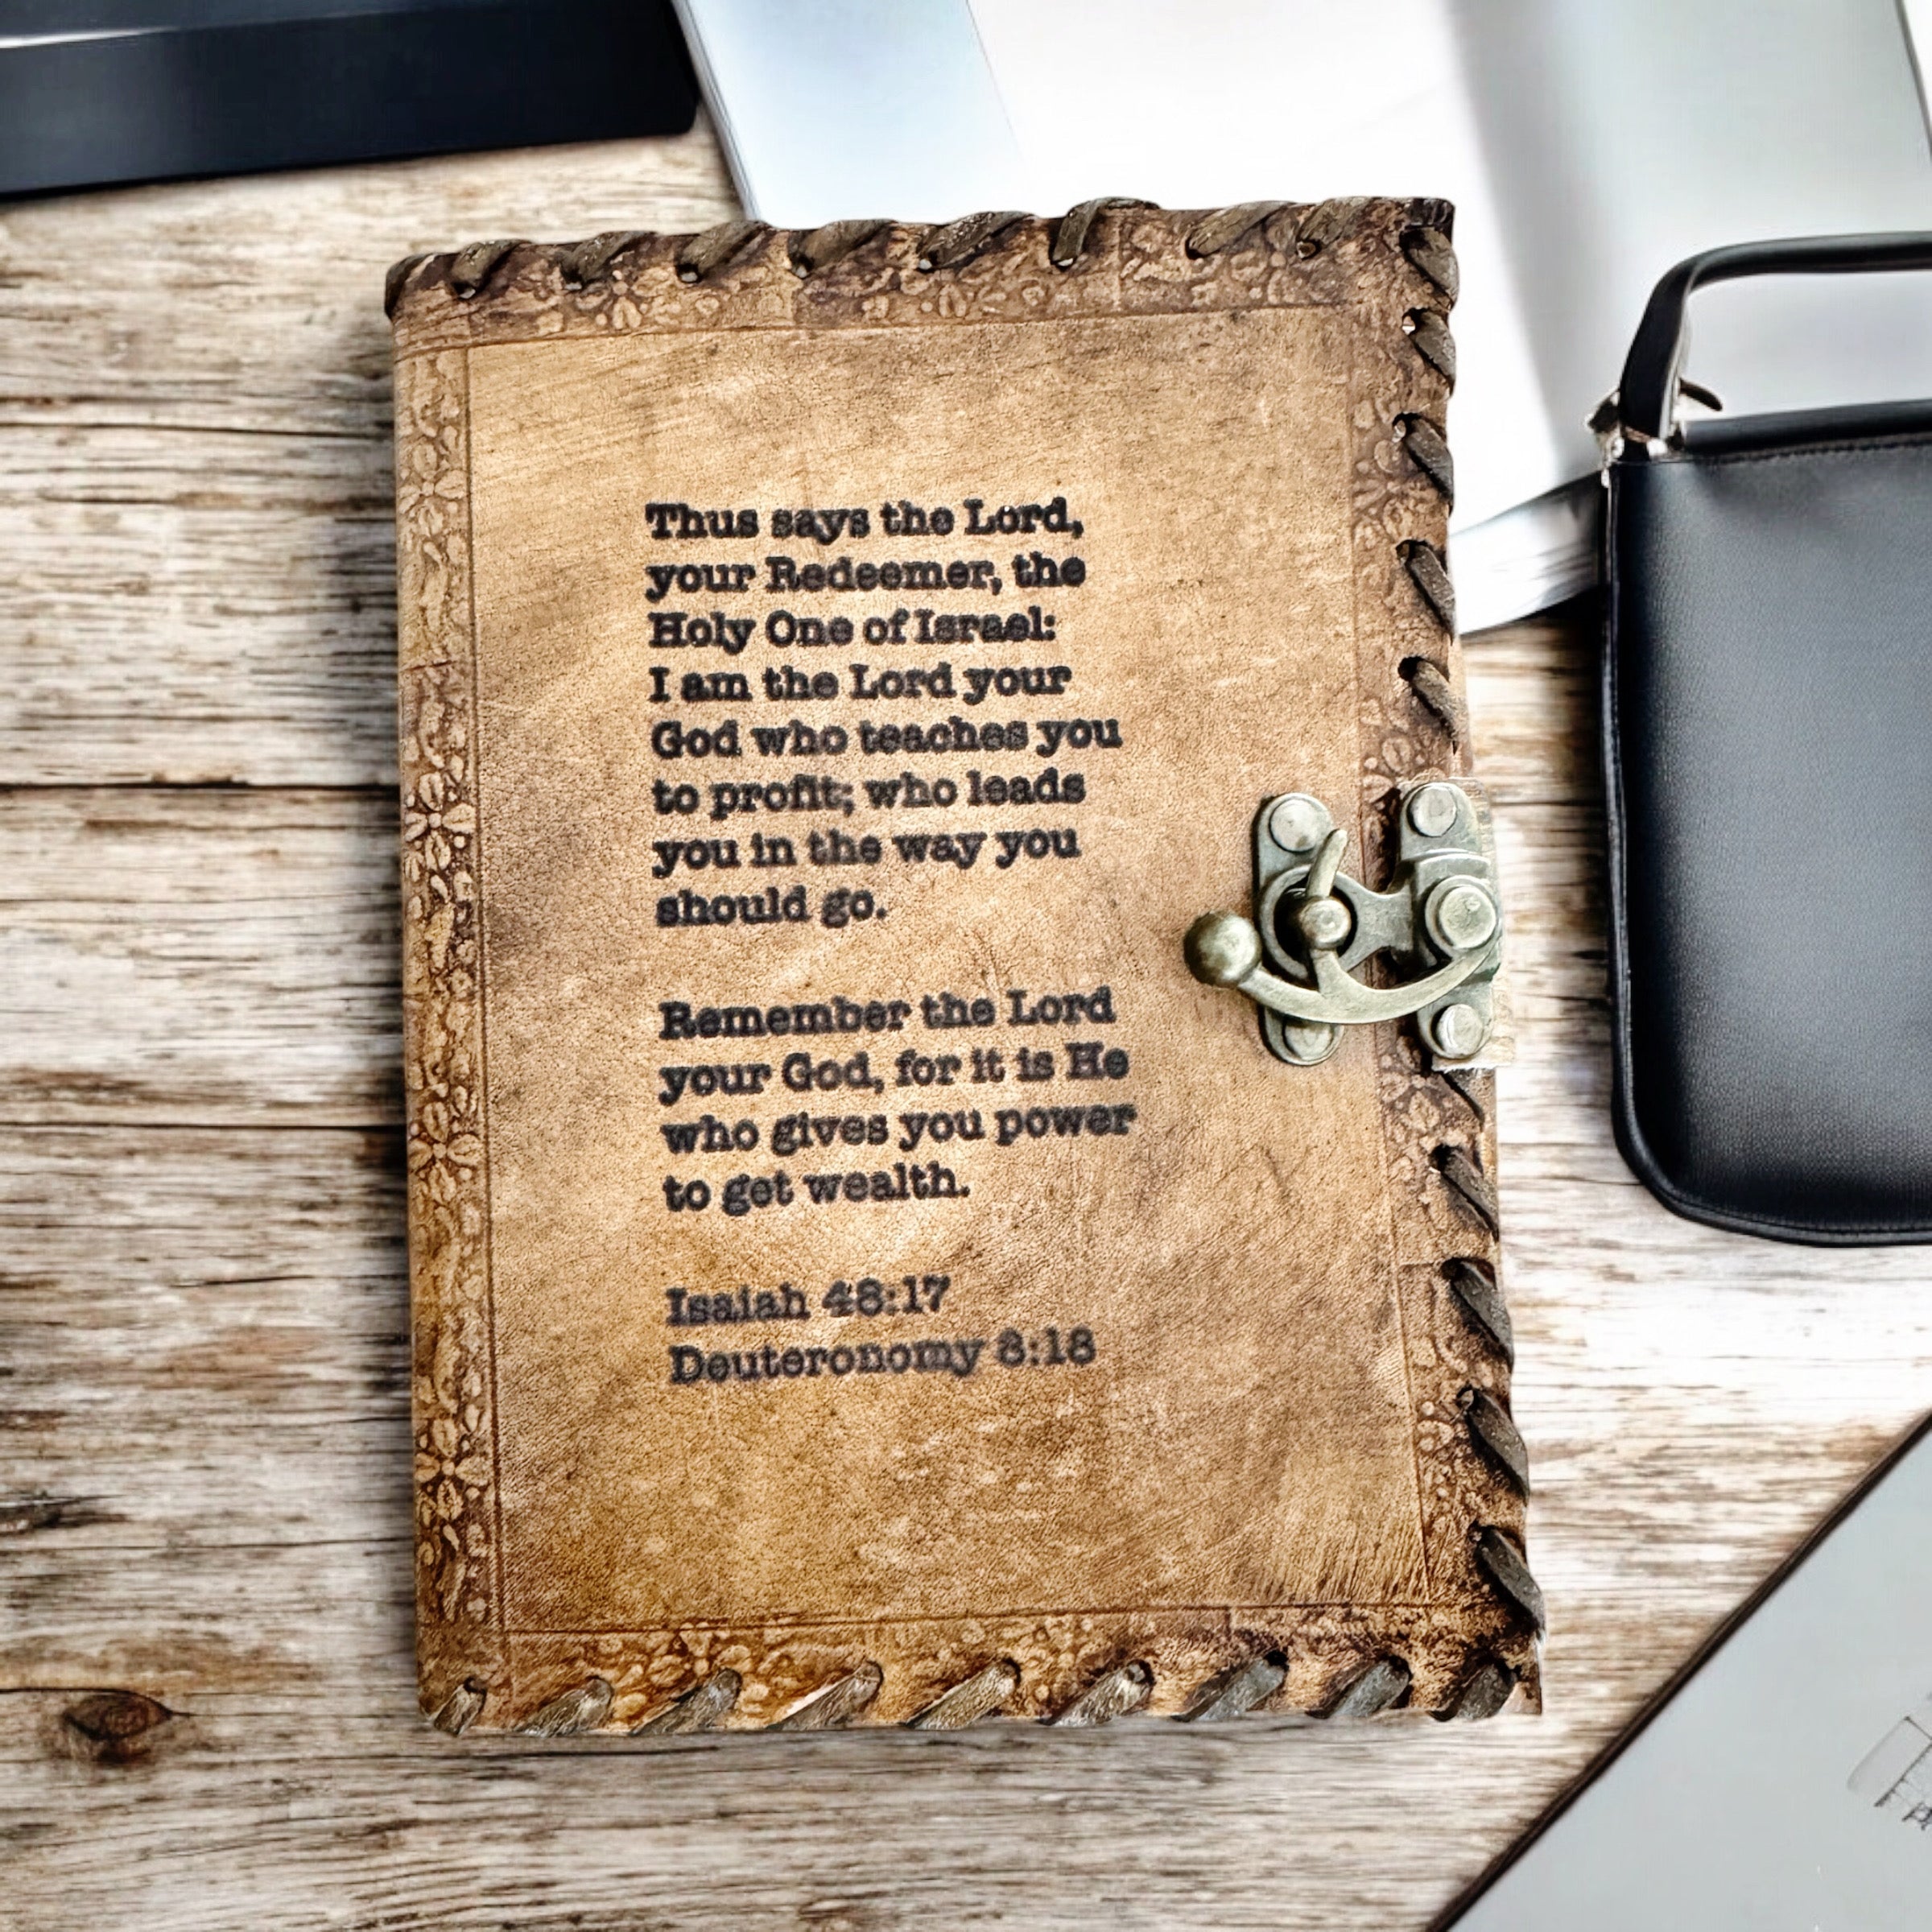 Thus says the Lord,
your Redeemer, the
Holy One of Israel:
I am the Lord your
God who teaches you
to profit; who leads
you in the way you
should go.
Remember the Lord
your God, for it is He
who gives you power
to get wealth.
Isaiah 48:17
Deuteronomy 8:18